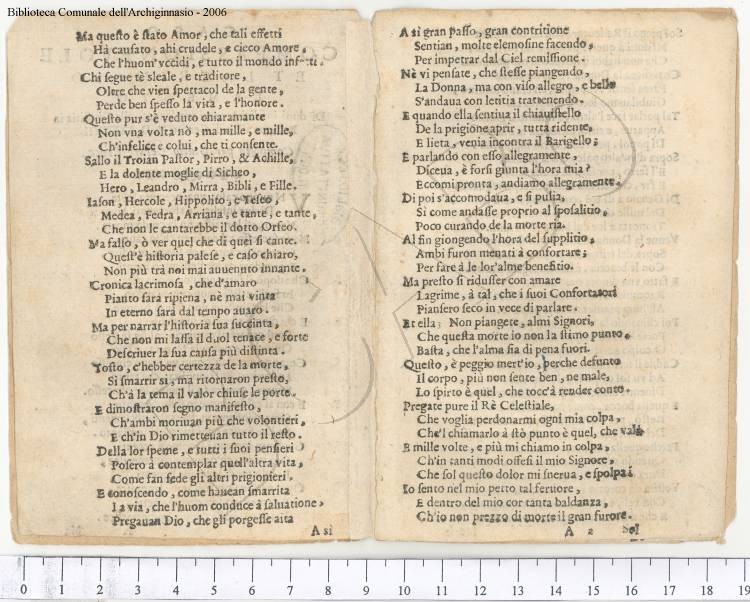 Biblioteca Comunale dell'Archiginnasio - 2006
Ma questo è stato Amor, che tali effetti
Hà causato, ahi crudele, e cieco Amore,
Che l'huom'vccidi, e tutto il mondo infetti.
Chi segue tè sleale, e traditore,
Oltre che vien spettacol de la gente,
Perde ben spesso la vita, e l'honore.
Questo pur s'è veduto chiaramante
Non vna volta nò, ma mille, e mille,
Ch'infelice e colui, che ti consente.
Sallo il Troian Pastor, Pirro, & Achille,
E la dolente moglie di Sicheo,
Hero, Leandro, Mirra, Bibli, e Fille.
Iason, Hercole, Hippolito, e Teseo,
Medea, Fedra, Arriana, e tante, e tante,
Che non le cantarebbe il dotto Orfeo.
Ma falso, ò ver quel che di quei si cante.
Quest'è historia palese, e caso chiaro,
Non più trà noi mai auuenuto innante.
Cronica lacrimosa, che d'amaro
Pianto sarà ripiena, nè mai vinta
In eterno sarà dal tempo auaro.
Ma per narrar l'historia sua succinta,
Che non mi lassa il duol tenace, e forte
Descriuer la sua causa più distinta.
Tosto, c'hebber certezza de la morte,
Si smarrir sì, ma ritornaron presto,
Ch'à la tema il valor chiuse le porte.
E dimostraron segno manifesto,
Ch'ambi moriuan più che volontieri,
E ch'in Dio rimetteuan tutto il resto.
Della lor speme, e tutti i suoi pensieri
Posero à contemplar quell'altra vita,
Come fan fede gli altri prigionieri.
E conoscendo, come hauean smarrita
La via, che l'huom conduce à saluatione,
Pregauan Dio, che gli porgesse aita
A si
A si gran passo, gran contritione
Sentian, molte elemosine facendo,
Per impetrar dal Ciel remissione.
Nè vi pensate, che stesse piangendo,
La Donna, ma con viso allegro, e bello
S'andaua con letitia trattenendo.
E quando ella sentiua il chiauistello
De la prigione aprir, tutta ridente,
E lieta, venia incontra il Barigello;
E parlando con esso allegramente,
Diceua, è forsi giunta l'hora mia?
Eccomi pronta, andiamo allegramente.
Di poi s'accomodaua, e si pulia,
Si come andasse proprio al sposalitio,
Poco curando de la morte ria.
Al fin giongendo l'hora del supplitio,
Ambi furon menati à confortare;
Per fare à le lor'alme benefitio.
Ma presto si ridusser con amare
Lagrime, à tal, che i suoi Confortatori
Piansero seco in vece di parlare.
Et ella; Non piangete, almi Signori,
Che questa morte io non la stimo punto,
Basta, che l'alma sia di pena fuori.
Questo, è peggio mert'io, perche defunto
Il corpo, più non sente ben, ne male,
Lo spirto è quel, che tocc'à render conto.
Pregate pure il Rè Celestiale,
Che voglia perdonarmi ogni mia colpa,
Che'l chiamarlo à stò punto è quel, che vale
E mille volte, e più mi chiamo in colpa,
Ch'in tanti modi offesi il mio Signore,
Che sol questo dolor mi snerua, e spolpa:
Io sento nel mio petto tal feruore,
E dentro del mio cor tanta baldanza,
Ch'io non prezzo di morte il gran furore.
A 2 Sol
0 1 2 3 4 5 6 7 8 9 10 11 12 13 14 15 16 17 18 19